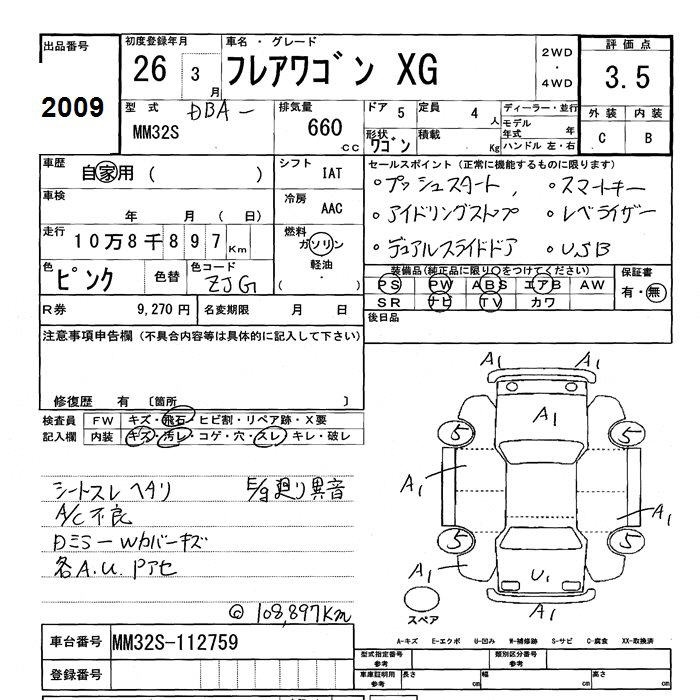 出品番号
2009
初度登録年月
26 3月
車名・グレード
フレアワゴン XG
2WD
・
4WD
評価点
3.5
外装 内装
C B
型式 DBA-
MM32S
排気量
660 cc
ドア 5
定員 4人
形状 ワゴン
積載 Kg
ディーラー・並行
モデル年式 年
ハンドル 左・右
車歴
自家用 ( )
車検
年 月 ( 日)
走行
10万8千897Km
色
ピンク
色替
色コード
ZJG
シフト
IAT
冷房
AAC
燃料
ガソリン
軽油
( ・ )
セールスポイント (正常に機能するものに限ります)
・プッシュスタート、 ・スマートキー
・アイドリングストップ ・レベライザー
・デュアルスライドドア ・USB
装備品(純正品に限り○をつけてください)
PS PW ABS エアB AW
SR ナビ TV カワ
保証書
有・無
R券 9,270円
名変期限 月 日
後日品
注意事項申告欄 (不具合内容等は具体的に記入して下さい)
修復歴 有 〔箇所 〕
検査員記入欄
FW キズ・飛石・ヒビ割・リペア跡・X要
内装 キズ・汚レ・コゲ・穴・スレ・キレ・破レ
シートスレ ヘタリ E/g廻り異音
A/C不良
DミラーWカバーキズ
各A.U.Pアセ
◎ 108,897Km
A1 A1
A1
5 5
A1 A1
5 5
A1 U1
A1
スペア
A-キズ E-エクボ U-凹み W-補修跡 S-サビ C-腐食 XX-取換済
車台番号 MM32S-112759
登録番号
型式指定番号 参考
類別区分番号 参考
車庫証明用 参考
長さ cm
幅 cm
高さ cm